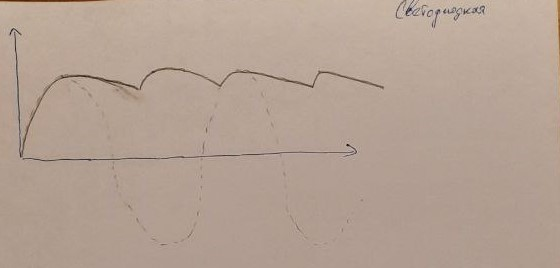 Светодиодная